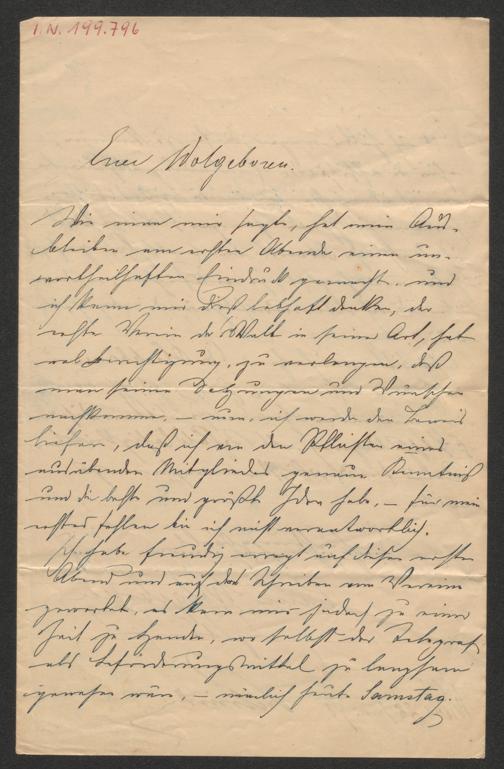 I.N. 199.796
Euer Wolgeboren.
Wie man mir sagte, hat mein Aus-
bleiben am ersten Abende einen un-
vortheilhaften Eindruck gemacht, und
ich kann mir dieß lebhaft denken, der
erste Verein der Welt in seiner Art, hat
wol Berechtigung, zu verlangen, daß
man seinen Satzungen und Wünschen
nachkomme, – nun, ich werde den Beweis
liefern, daß ich von den Pflichten eines
ausübenden Mitgliedes genaue Kenntniß
und die beste und größte Idee habe, – für mein
erstes fehlen bin ich nicht verantwortlich.
Ich habe freudig erregt auf diesen ersten
Abend und auf das Schreiben vom Verein
gewartet, es kam mir jedoch zu einer
Zeit zu Handen, wo selbst der Telegraf
als Beförderungsmittel zu langsam
gewesen wäre, – nämlich heute Samstag.